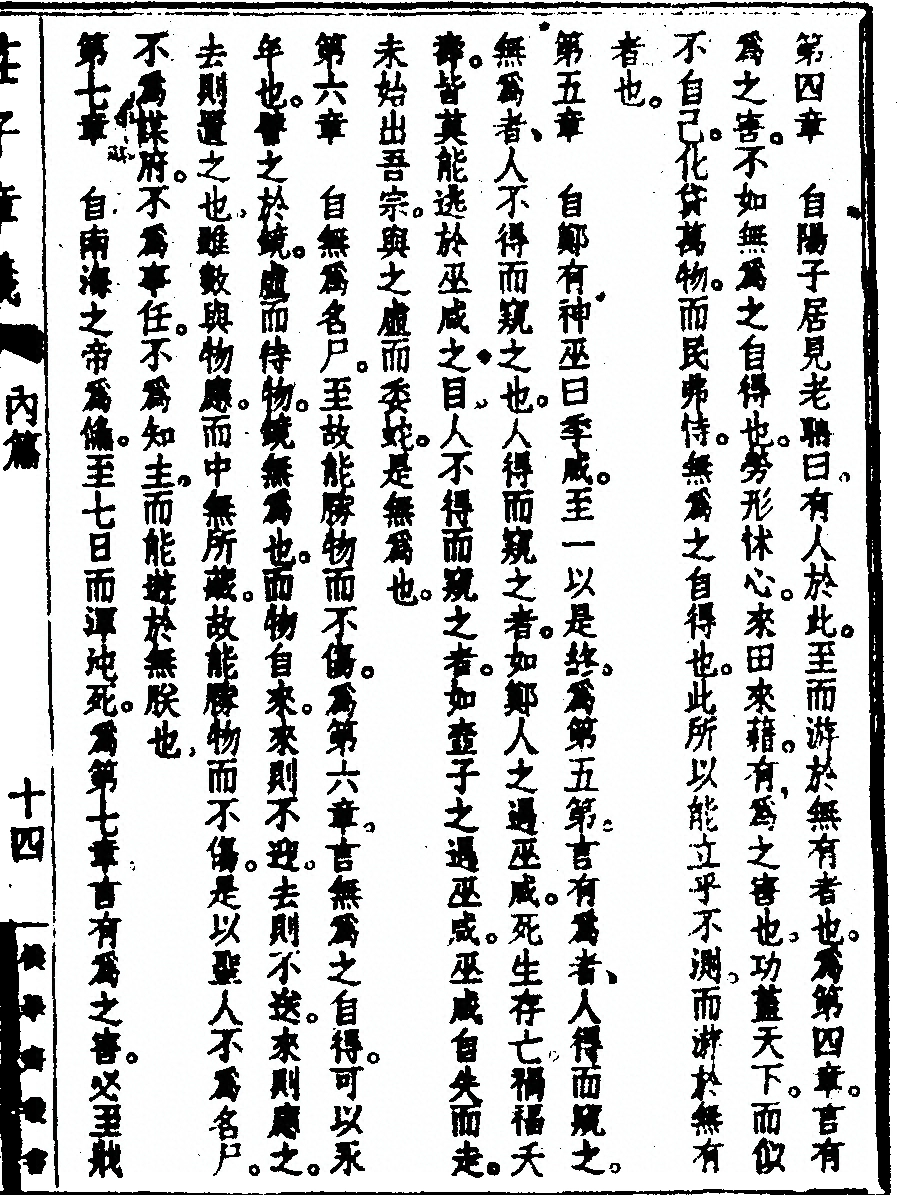 第四章　自陽子居見老聃曰。有人於此。至而游於無有者也。爲第四章。言有
爲之害。不如無爲之自得也。勞形怵心。來田來藉。有爲之害也。功蓋天下。而似
不自己。化貸萬物。而民弗恃。無爲之自得也。此所以能立乎不測。而游於無有
者也。
第五章　自鄭有神巫曰季咸。至一以是終。爲第五第。言有爲者、人得而窺之。
無爲者、人不得而窺之也。人得而窺之者。如鄭人之遇巫咸。死生存亡。禍福夭
壽。皆莫能逃於巫咸之目。人不得而窺之者。如壺子之遇巫咸。巫咸自失而走。
未始出吾宗。與之虛而委蛇。是無爲也。
第六章　自無爲名尸。至故能勝物而不傷。爲第六章。言無爲之自得。可以永
年也。譬之於鏡。虛而待物。鏡無爲也。而物自來。來則不迎。去則不送。來則應之。
去則置之也。雖數與物應。而中無所藏。故能勝物而不傷。是以聖人不爲名尸。
不爲謀府。不爲事任。不爲知主。而能遊於無朕也。
第七章　自南海之帝爲儵。至七日而渾沌死。爲第七章。言有爲之害。必至戕
莊子章義
內篇
十四